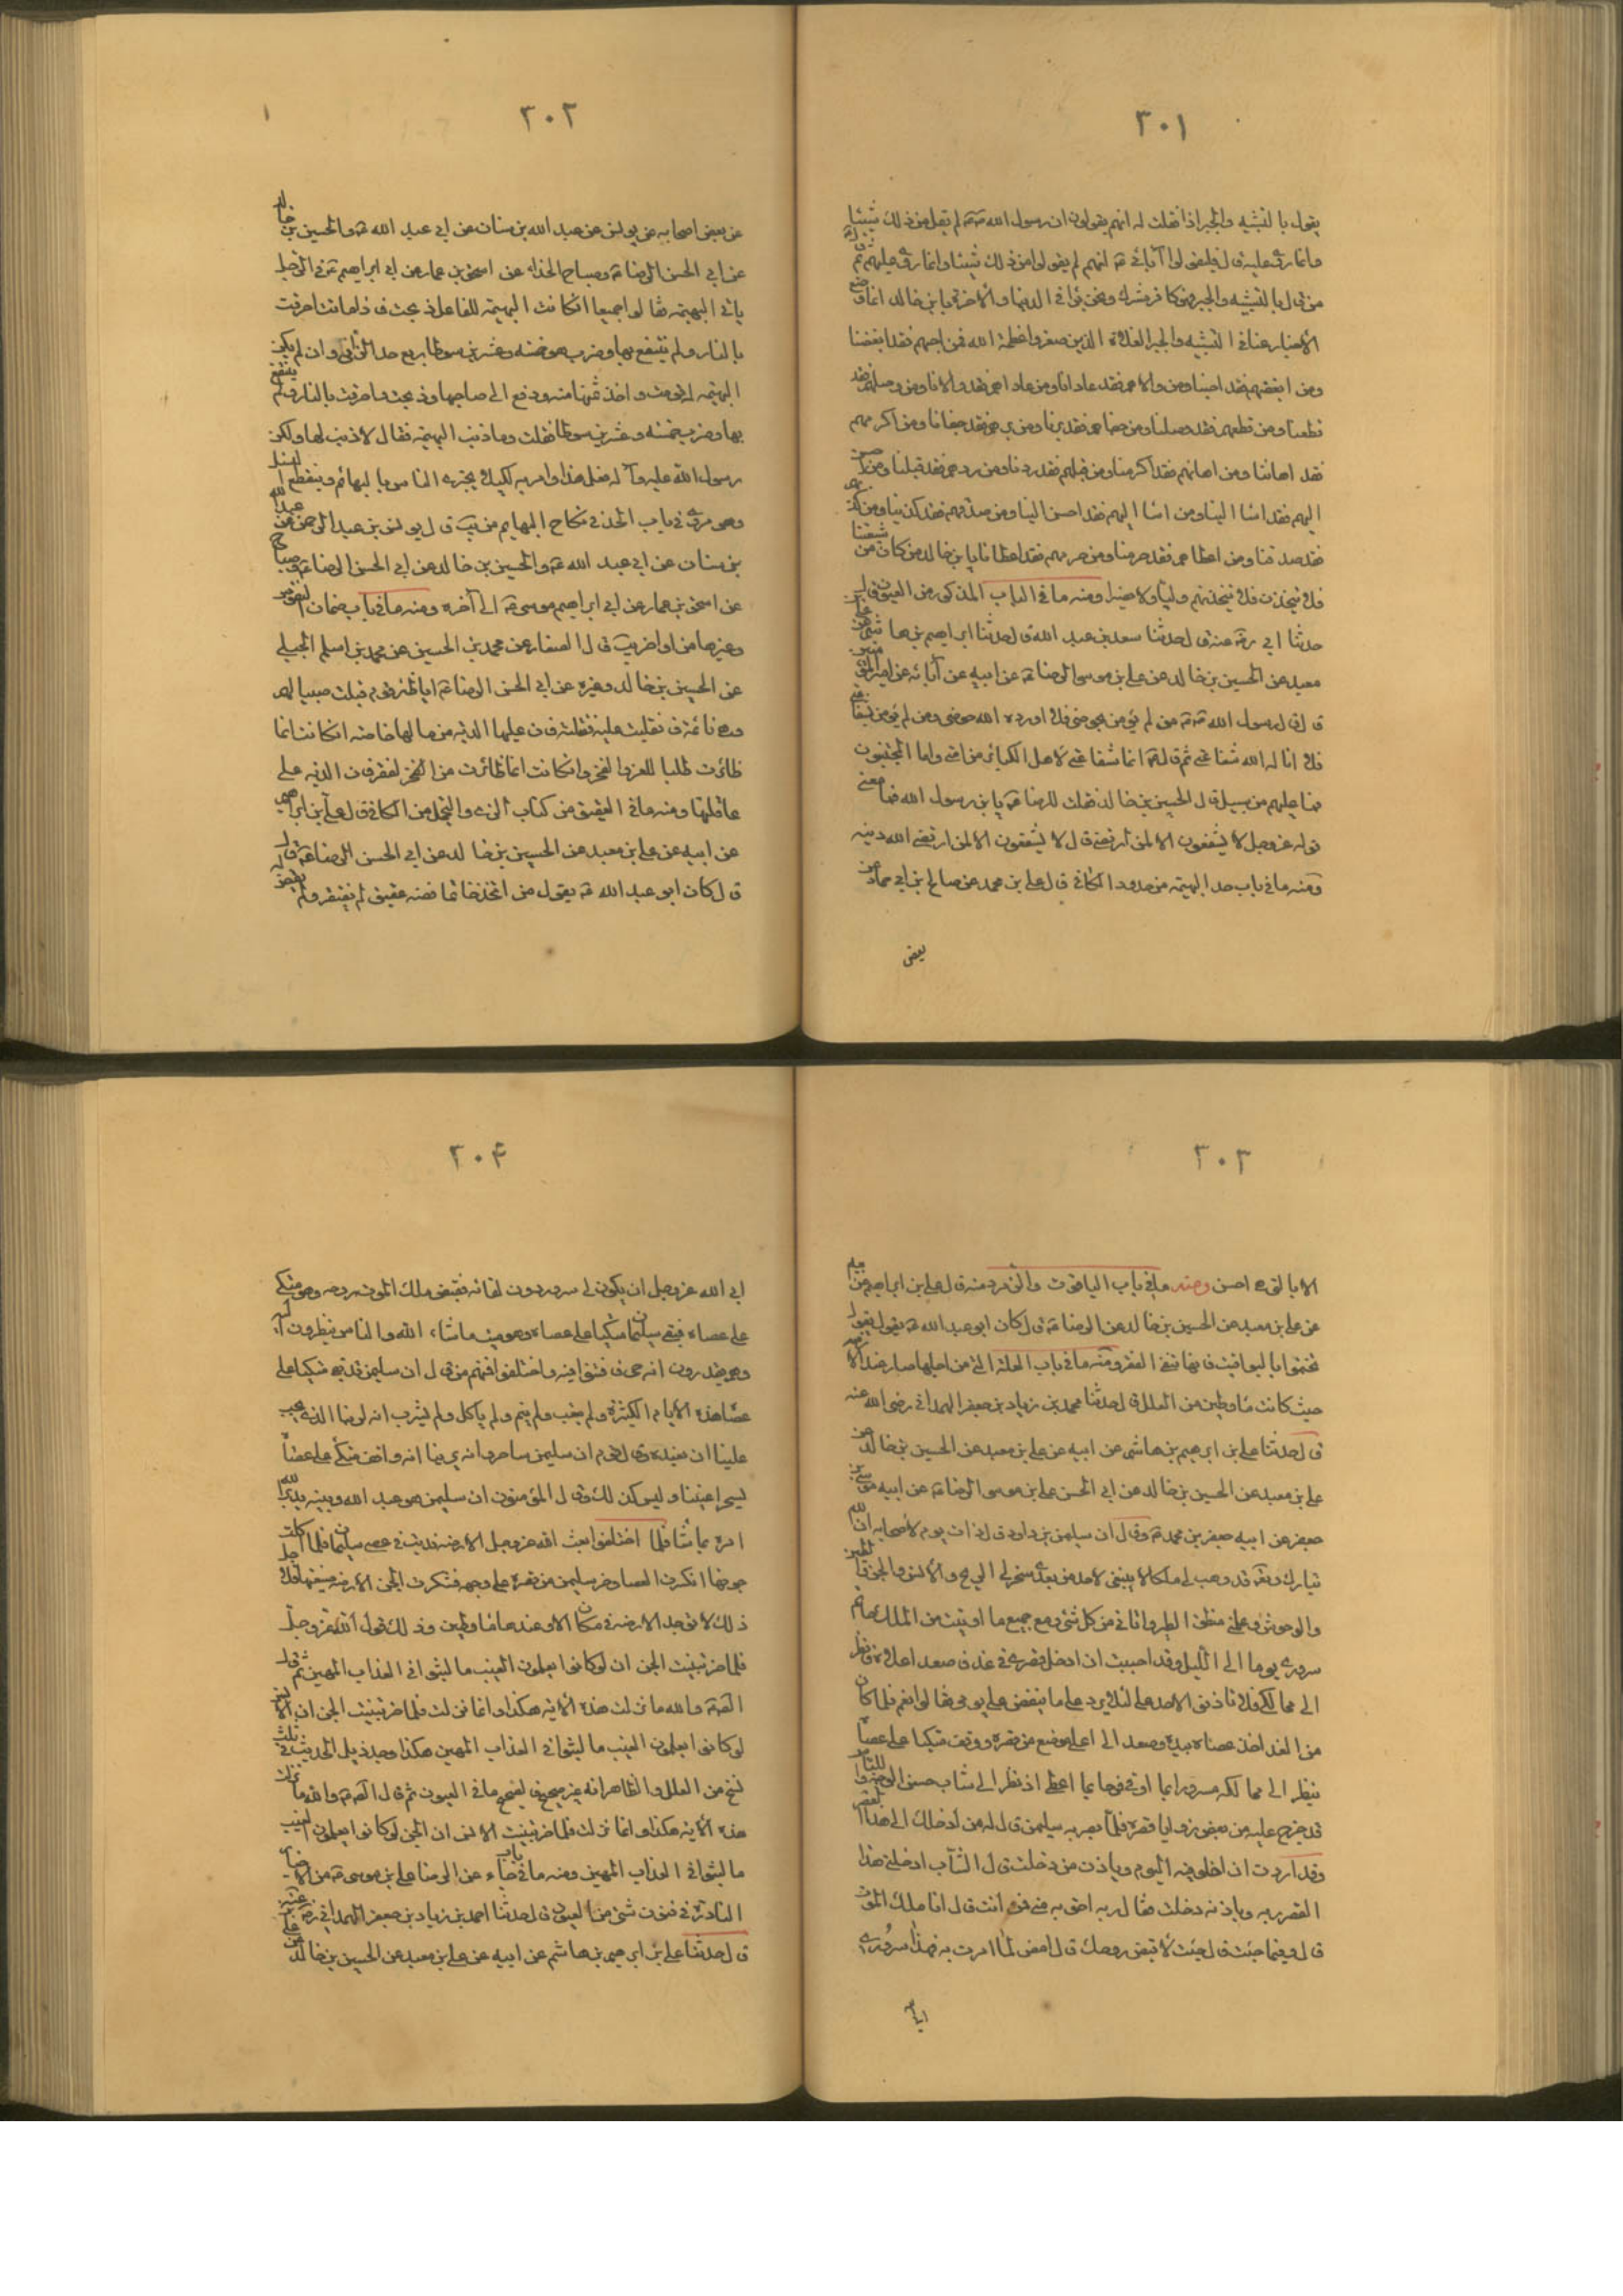 ٣٠١
يقول بالتشبيه والجبر اذا فقلت له انهم يقولون ان رسول الله صم لم يقل من ذلك شيئا
وانما روى عليه قال فليقولوا آبائى ع انهم لم يقولوا من ذلك شيئا وانما روى عليهم ثم قال ع
من قال بالتشبيه والجبر فهو كافر مشرك ونحن برآء فى الدنيا والآخرة يا بن خالد انما وضع
الاخبار عنا فى التشبيه والجبر الغلاة الذين صغروا عظمة الله فمن احبهم فقد ابغضنا
ومن ابغضهم فقد احبنا ومن والاهم فقد عادانا ومن عاداهم فقد والانا ومن وصلهم فقد
قطعنا ومن قطعهم فقد وصلنا ومن جفاهم فقد برنا ومن برهم فقد جفانا ومن اكرمهم
فقد اهاننا ومن اهانهم فقد اكرمنا ومن قبلهم فقد ردنا ومن ردهم فقد قبلنا ومن احسن
اليهم فقد اسا الينا ومن اسا اليهم فقد احسن الينا ومن صدقهم فقد كذبنا ومن كذبهم
فقد صدقنا ومن اعطاهم فقد حرمنا ومن حرمهم فقد اعطانا يا بن خالد من كان من شيعتنا
فلا يتخذن منهم وليا ولا نصيرا ومنه ما فى الباب المذكور من العيون قال
حدثنا ابى رضه عنه قال حدثنا سعد بن عبد الله قال حدثنا ابراهيم بن هاشم عن على بن
معبد عن الحسين بن خالد عن على بن موسى الرضا ع عن ابيه عن آبائه عن امير المؤمنين
قال قال رسول الله صم من لم يؤمن بحوضى فلا اورده الله حوضى ومن لم يؤمن بشفاعتى
فلا اناله الله شفاعتى ثم قال ع انما شفاعتى لاهل الكبائر من امتى واما المحسنون
فما عليهم من سبيل قال الحسين بن خالد فقلت للرضا ع يا بن رسول الله فما معنى
قوله عز وجل لا يشفعون الا لمن ارتضى قال لا يشفعون الا لمن ارتضى الله دينه
ومنه ما فى باب حد البهيمة من حدود الكافى قال على بن محمد عن صالح بن ابى حماد عن
بعض
٣٠٢
عن بعض اصحابه عن يونس عن عبد الله بن سنان عن ابى عبد الله ع والحسين بن خالد
عن ابى الحسن الرضا ع وصباح الحذاء عن اسحق بن عمار عن ابى ابراهيم ع فى الرجل
ياتى البهيمة فقالوا جميعا ان كانت البهيمة للفاعل ذبحت فاذا ماتت احرقت
بالنار ولم ينتفع بها وضرب هو خمسة وعشرين سوطا ربع حد الزانى وان لم يكن
البهيمة له قومت واخذ ثمنها منه ودفع الى صاحبها وذبحت واحرقت بالنار ولم ينتفع
بها وضرب خمسة وعشرين سوطا فقلت وما ذنب البهيمة فقال لا ذنب لها ولكن
رسول الله عليه وآله فعل هذا وامر به لكيلا يجترى الناس بالبهائم وينقطع النسل
وهو مروى فى باب الحد فى نكاح البهايم من يب قال يونس بن عبد الرحمن عن عبد الله
بن سنان عن ابى عبد الله ع والحسين بن خالد عن ابى الحسن الرضا ع وصباح
عن اسحق بن عمار عن ابى ابراهيم موسى ع الى آخره ومنه ما فى باب ضمان النفوس
وغيرها من اواخر يب قال الصفار عن محمد بن الحسين عن محمد بن اسلم الجبلى
عن الحسين بن خالد وغيره عن ابى الحسن الرضا ع ايما ظئر قوم قتلت صبيا لهم
وهى نائمة فانقلبت عليه فقتلته فان عليها الدية من مالها خاصة ان كانت انما
ظائرت طلبا للعز والفخر وان كانت انما ظائرت من الفقر فان الدية على
عاقلتها ومنه ما فى العقيق من كتاب الزى والتجمل من الكافى قال على بن ابراهيم
عن ابيه عن على بن معبد عن الحسين بن خالد عن ابى الحسن الرضا ع قال
قال كان ابو عبد الله ع يقول من اتخذ خاتما فصه عقيق لم يفتقر ولم يقض
٣٠٣
الا بالتى هى احسن ومنه ما فى باب الياقوت والزمرد منه قال على بن ابراهيم عن
عن على بن معبد عن الحسين بن خالد عن الرضا ع قال كان ابو عبد الله ع يقول
تختموا باليواقيت فانها تنفى الفقر ومنه ما فى باب العلة التى من اجلها صار عند الارضة
حيث كانت ماء وطين من العلل قال حدثنا محمد بن زياد بن جعفر الهمدانى رضى الله عنه
قال حدثنا على بن ابرهيم بن هاشم عن ابيه عن على بن معبد عن الحسين بن خالد عن
على بن معبد عن الحسين بن خالد عن ابى الحسن على بن موسى الرضا ع عن ابيه موسى بن
جعفر عن ابيه جعفر بن محمد ع وقال ان سليمن بن داود قال ذات يوم لاصحابه ان الله
تبارك وتعه قد وهب لى ملكا لا ينبغى لاحد من بعدى سخر لى الريح والانس والجن والطير
والوحوش وعلمنى منطق الطير واتانى من كل شئ ومع جميع ما اوتيت من الملك ما تم
سرورى يوما الى الليل وقد احببت ان ادخل قصرى فى غد فاصعد اعلاه وانظر
الى ممالكى فلا تاذنوا لاحد على لئلا يرد على ما ينغص على يومى فقالوا نعم فلما كان
من الغد اخذ عصاه بيده وصعد الى اعلى موضع من قصره ووقف متكيا على عصاه
ينظر الى ممالكه مسرورا بما اوتى فرحا بما اعطى اذ نظر الى شاب حسن الوجه واللباس
قد خرج عليه من بعض زوايا قصره فلما بصر به سليمن قال له من ادخلك الى هذا القصر
وقد اردت ان اخلو فيه اليوم وباذن من دخلت قال الشاب ادخلنى هذا
القصر ربه وباذنه دخلت فقال ربه احق به منى فمن انت قال انا ملك الموت
قال وفيما جئت قال جئت لاقبض روحك قال امض لما امرت به فهذا سرورى
ابى
٣٠٤
ابى الله عز وجل ان يكون لى سرور دون لقائه فقبض ملك الموت روحه وهو متكى
على عصاه فبقى سليمان متكيا على عصاه وهو ميت ما شاء الله والناس ينظرون اليه
وهم يقدرون انه حى فافتتنوا فيه واختلفوا فمنهم من قال ان سليمن قد بقى متكيا على
عصاه هذه الايام الكثيرة ولم يتعب ولم ينم ولم ياكل ولم يشرب انه لربنا الذى يجب
علينا ان نعبده وقال قوم ان سليمن ساحر وانه يرينا انه واقف متكى على عصاه
يسحر اعيننا وليس كذلك وقال المؤمنون ان سليمن هو عبد الله ونبيه يدبر الله
امره بما شا فلما اختلفوا بعث الله عز وجل الارضة فدبت فى عصى سليمان فلما اكلت
جوفها انكسرت العصا وخر سليمن من قصره على وجهه فشكرت الجن الارضة صنيعها فلاجل
ذلك لا توجد الارضة فى مكان الا وعندها ماء وطين وذلك قول الله عز وجل
فلما خر تبينت الجن ان لو كانوا يعلمون الغيب ما لبثوا فى العذاب المهين ثم قال
الصم والله ما نزلت هذه الآية هكذا وانما نزلت فلما خر تبينت الجن ان الانس
لو كانوا يعلمون الغيب ما لبثوا فى العذاب المهين هكذا وجد ذيل الحديث فى ثلث
نسخ من العلل والظاهر انه غير صحيح والصحيح ما فى العيون ثم قال الصم ع والله ما نزلت
هذه الآية هكذا وانما نزلت فلما خر تبينت الانس ان الجن لو كانوا يعلمون الغيب
ما لبثوا فى العذاب المهين ومنه ما فى باب ما جاء عن الرضا على بن موسى ع من الاخبار
النادرة فى فنون شتى من العيون قال حدثنا احمد بن زياد بن جعفر الهمدانى رضه عنه
قال حدثنا على بن ابرهيم بن هاشم عن ابيه عن على بن معبد عن الحسين بن خالد عن